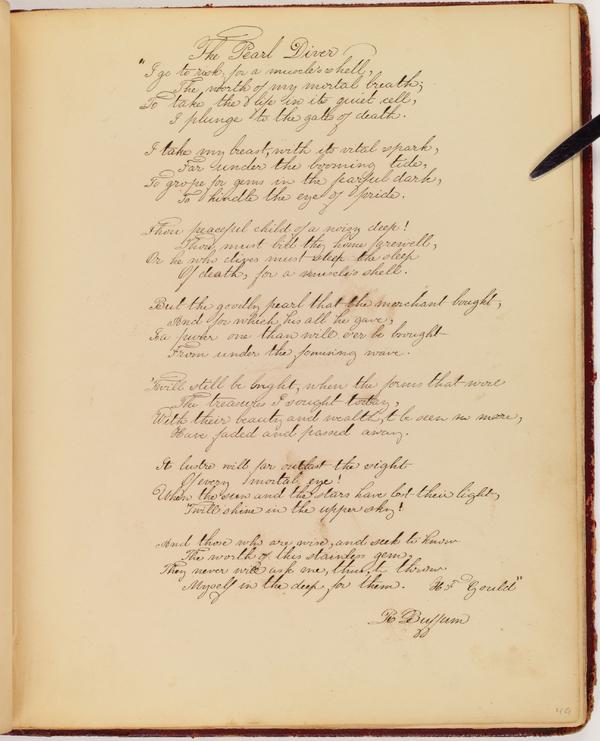 The Pearl Diver
"I go to seek, for a muscle's shell,
The worth of my mortal breath;
To take the life in its quiet cell,
I plunge to the gate of death.
I take my breast, with its vital spark,
Far under the booming tide,
To grope for gems in the fearful dark,
To kindle the eye of pride.
Thou peaceful child of a noisy deep!
Thou must bid thy home farewell,
Or he who dives must sleep the sleep
Of death, for a muscle's shell.
But the goodly pearl that the merchant bought,
And for which his all he gave,
Is a purer one than will e'er be brought
From under the foaming wave.
'Twill still be bright, when the forms that wore
The treasures I sought today,
With their beauty and wealth, to be seen no more,
Have faded and passed away.
It lustre will far outlast the sight
Of every mortal eye!
When the sun and the stars have lost their light,
'Twill shine in the upper sky!
And those who are wise, and seek to know
The worth of this stainless gem,
They never will ask me, thus, to throw
Myself in the deep for them. H F Gould"
R Buffum
49